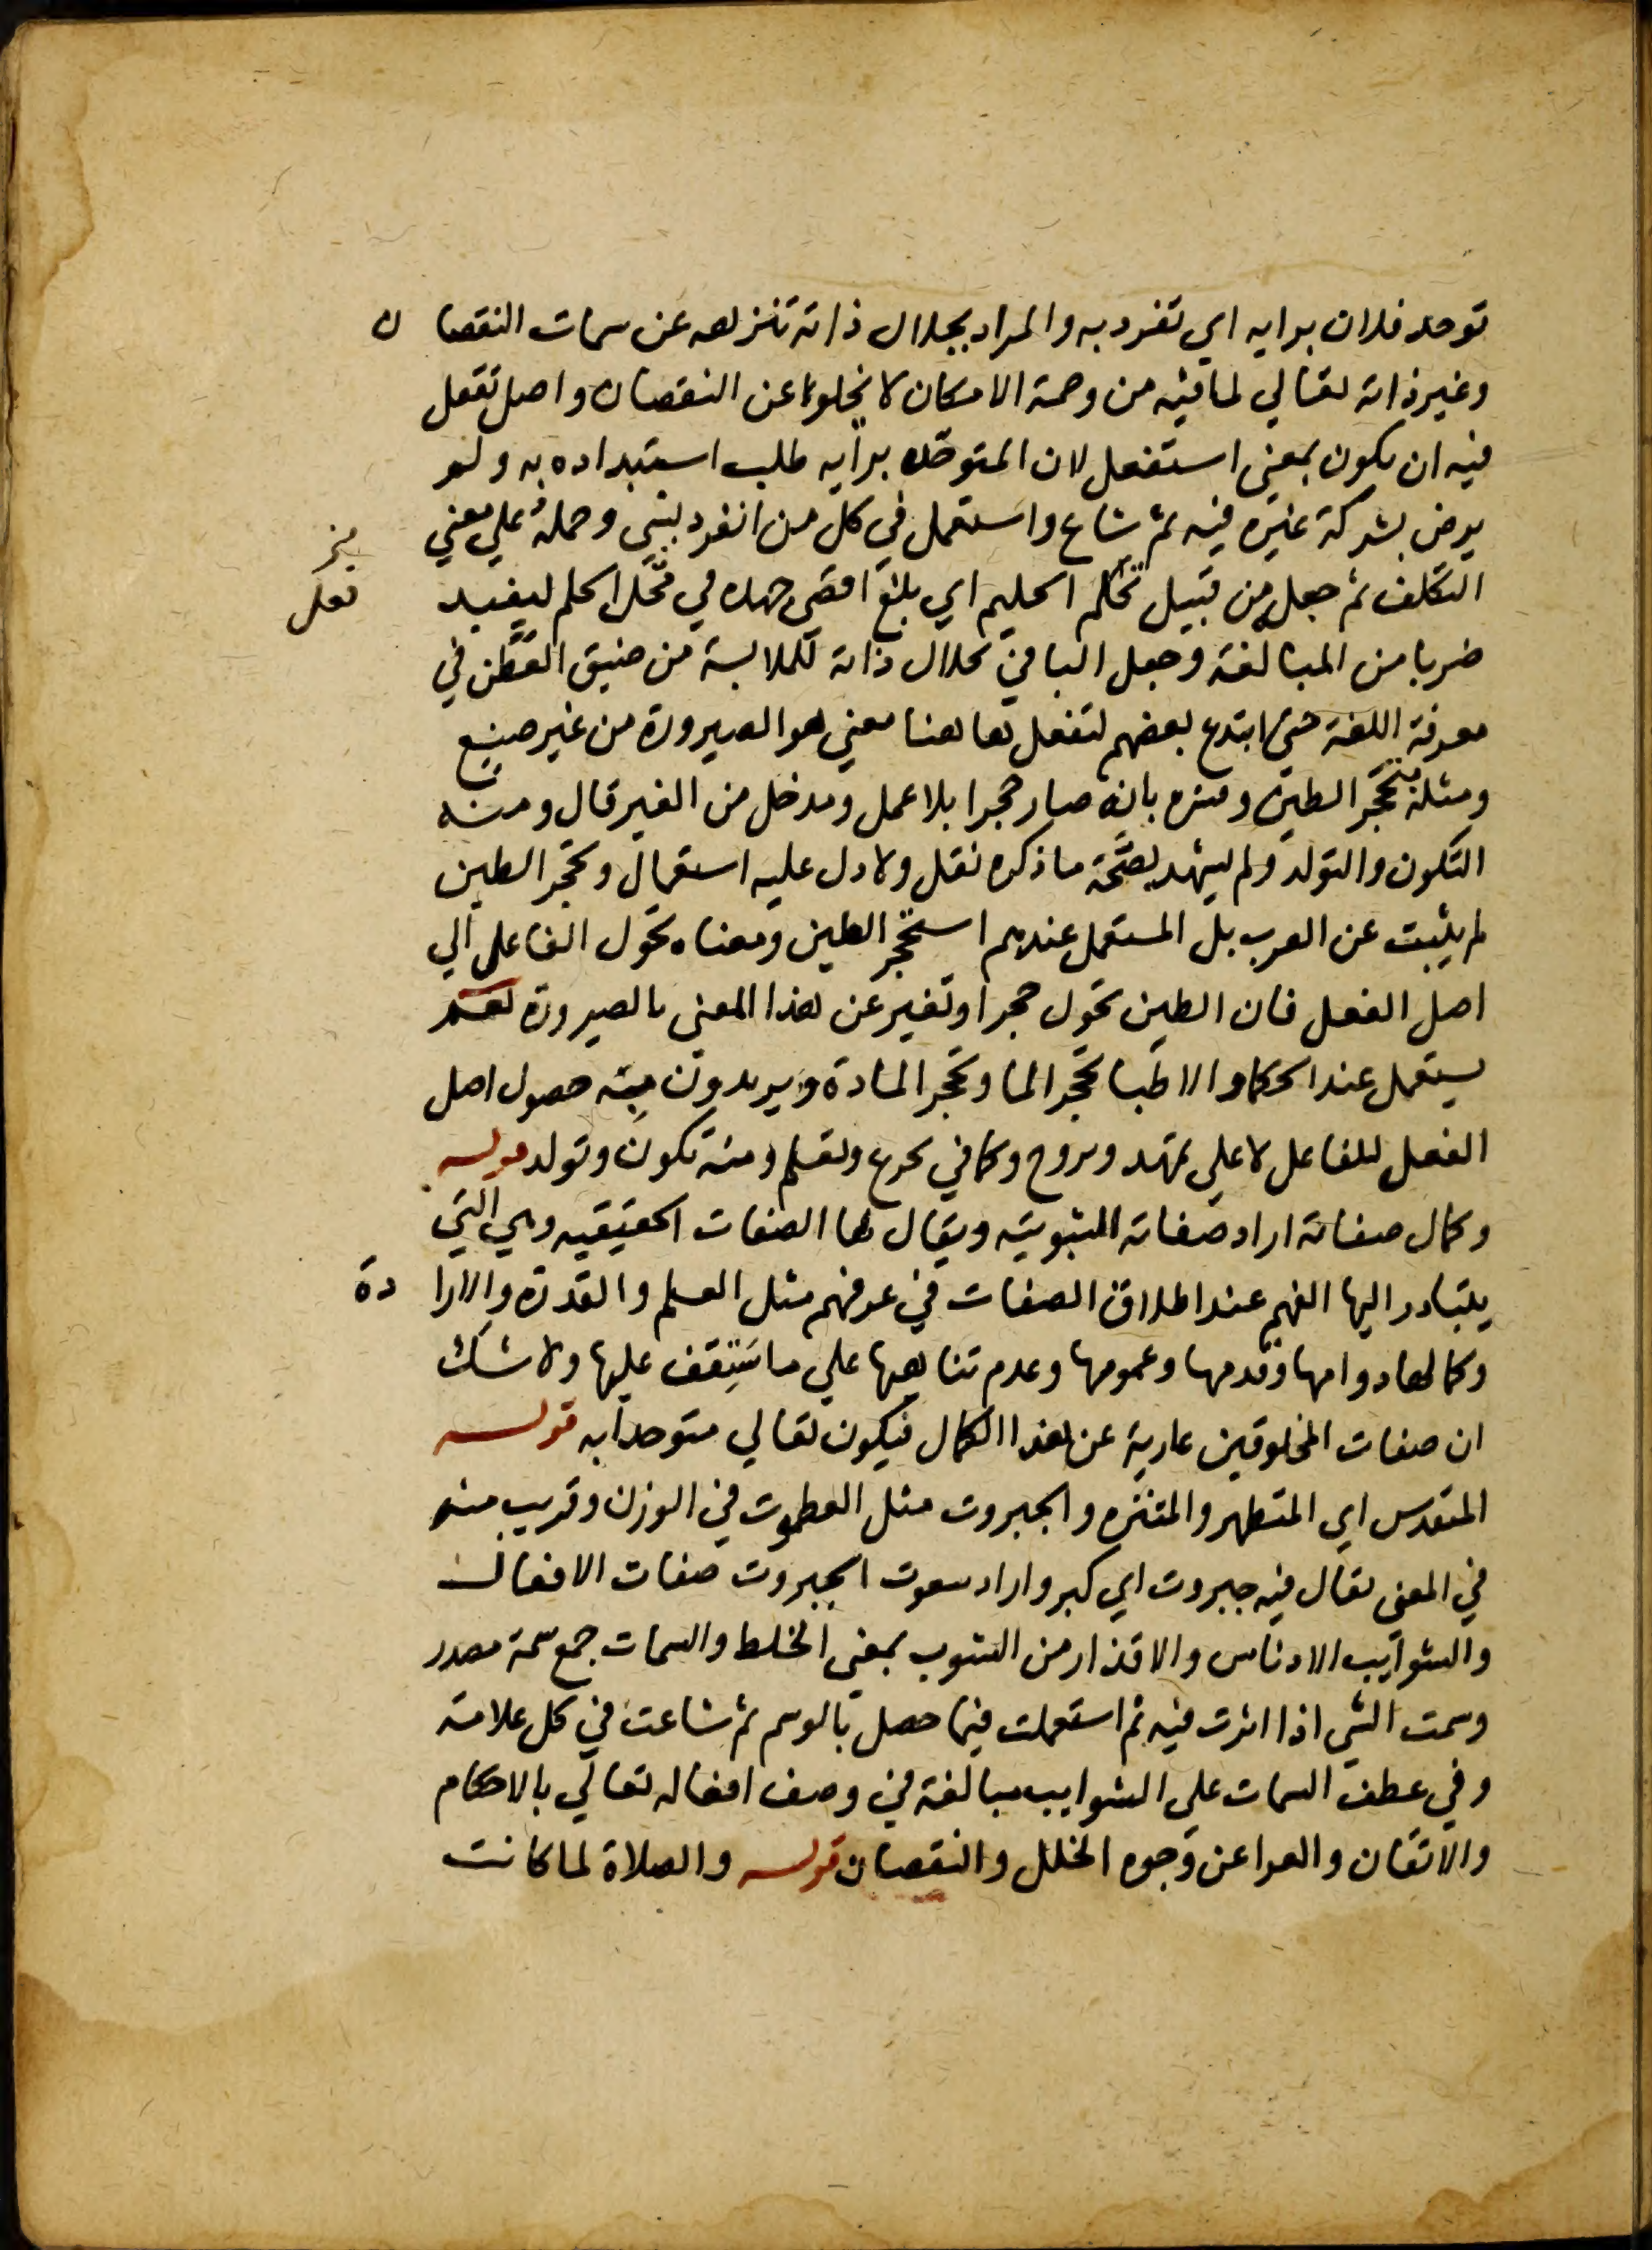 توحد فلان برايه اي تفرد به والمراد بجلال ذاته تنزهه عن سمات النقصان
وغير ذاته تعالي لما فيه من وصمة الامكان لا يخلو عن النقصان واصل تفعل
فيه ان يكون بمعني استفعل لان المتوحد برايه طلب استبداده به ولم
يرض بشركة غيره فيه ثم شاع واستعمل في كل من انفرد بشي وحمله علي معني
التكلف ثم جعله من قبيل تحلم الحليم اي بلغ اقصي جهده في تحمل الحلم ليفيد
ضربا من المبالغة وجعل البا في بجلال ذاته للملابسة من ضيق العطن في
معرفة اللغة حتي ابتدع بعضهم لتفعل هاهنا معني هو الصيرورة من غير صنيع
ومثله بتحجر الطين وفسره بانه صار حجرا بلا عمل ومدخل من الغير قال ومنه
التكون والتولد ولم يشهد بصحة ما ذكره نقل ولا دل عليه استعمال وتحجر الطين
لم يثبت عن العرب بل المستعمل عندهم استحجر الطين ومعناه تحول الفاعل الي
اصل الفعل فان الطين تحول حجرا وتغير عن هذا المعني بالصيرورة نعم
يستعمل عند الحكما والاطبا تحجر الما وتحجر المادة ويريدون منه حصول اصل
الفعل للفاعل لا علي تمهد وتروح وكما في تجرع وتعلم ومنه تكون وتولد قوله
وكمال صفاته اراد صفاته الثبوتية ويقال لها الصفات الحقيقيه وهي التي
يتبادر اليها الفهم عند اطلاق الصفات في عرفهم مثل العلم والقدرة والارادة
وكمالها دوامها وقدمها وعمومها وعدم تناهيها علي ما ستقف عليها ولا شك
ان صفات المخلوقين عارية عن هذا الكمال فيكون تعالي متوحدا به قوله
المتقدس اي المتطهر والمتنزه والجبروت مثل العظموت في الوزن وقريب منه
في المعني يقال فيه جبروت اي كبر واراد بنعوت الجبروت صفات الافعال
والشوايب الادناس والاقذار من الشوب بمعني الخلط والسمات جمع سمة مصدر
وسمت الشي اذا اثرت فيه ثم استعملت فيما حصل بالوسم ثم شاعت في كل علامة
وفي عطف السمات علي الشوايب مبالغة في وصف افعاله تعالي بالاحكام
والاتقان والعرا عن وجوه الخلل والنقصان قوله والصلاة لما كانت
تفعل